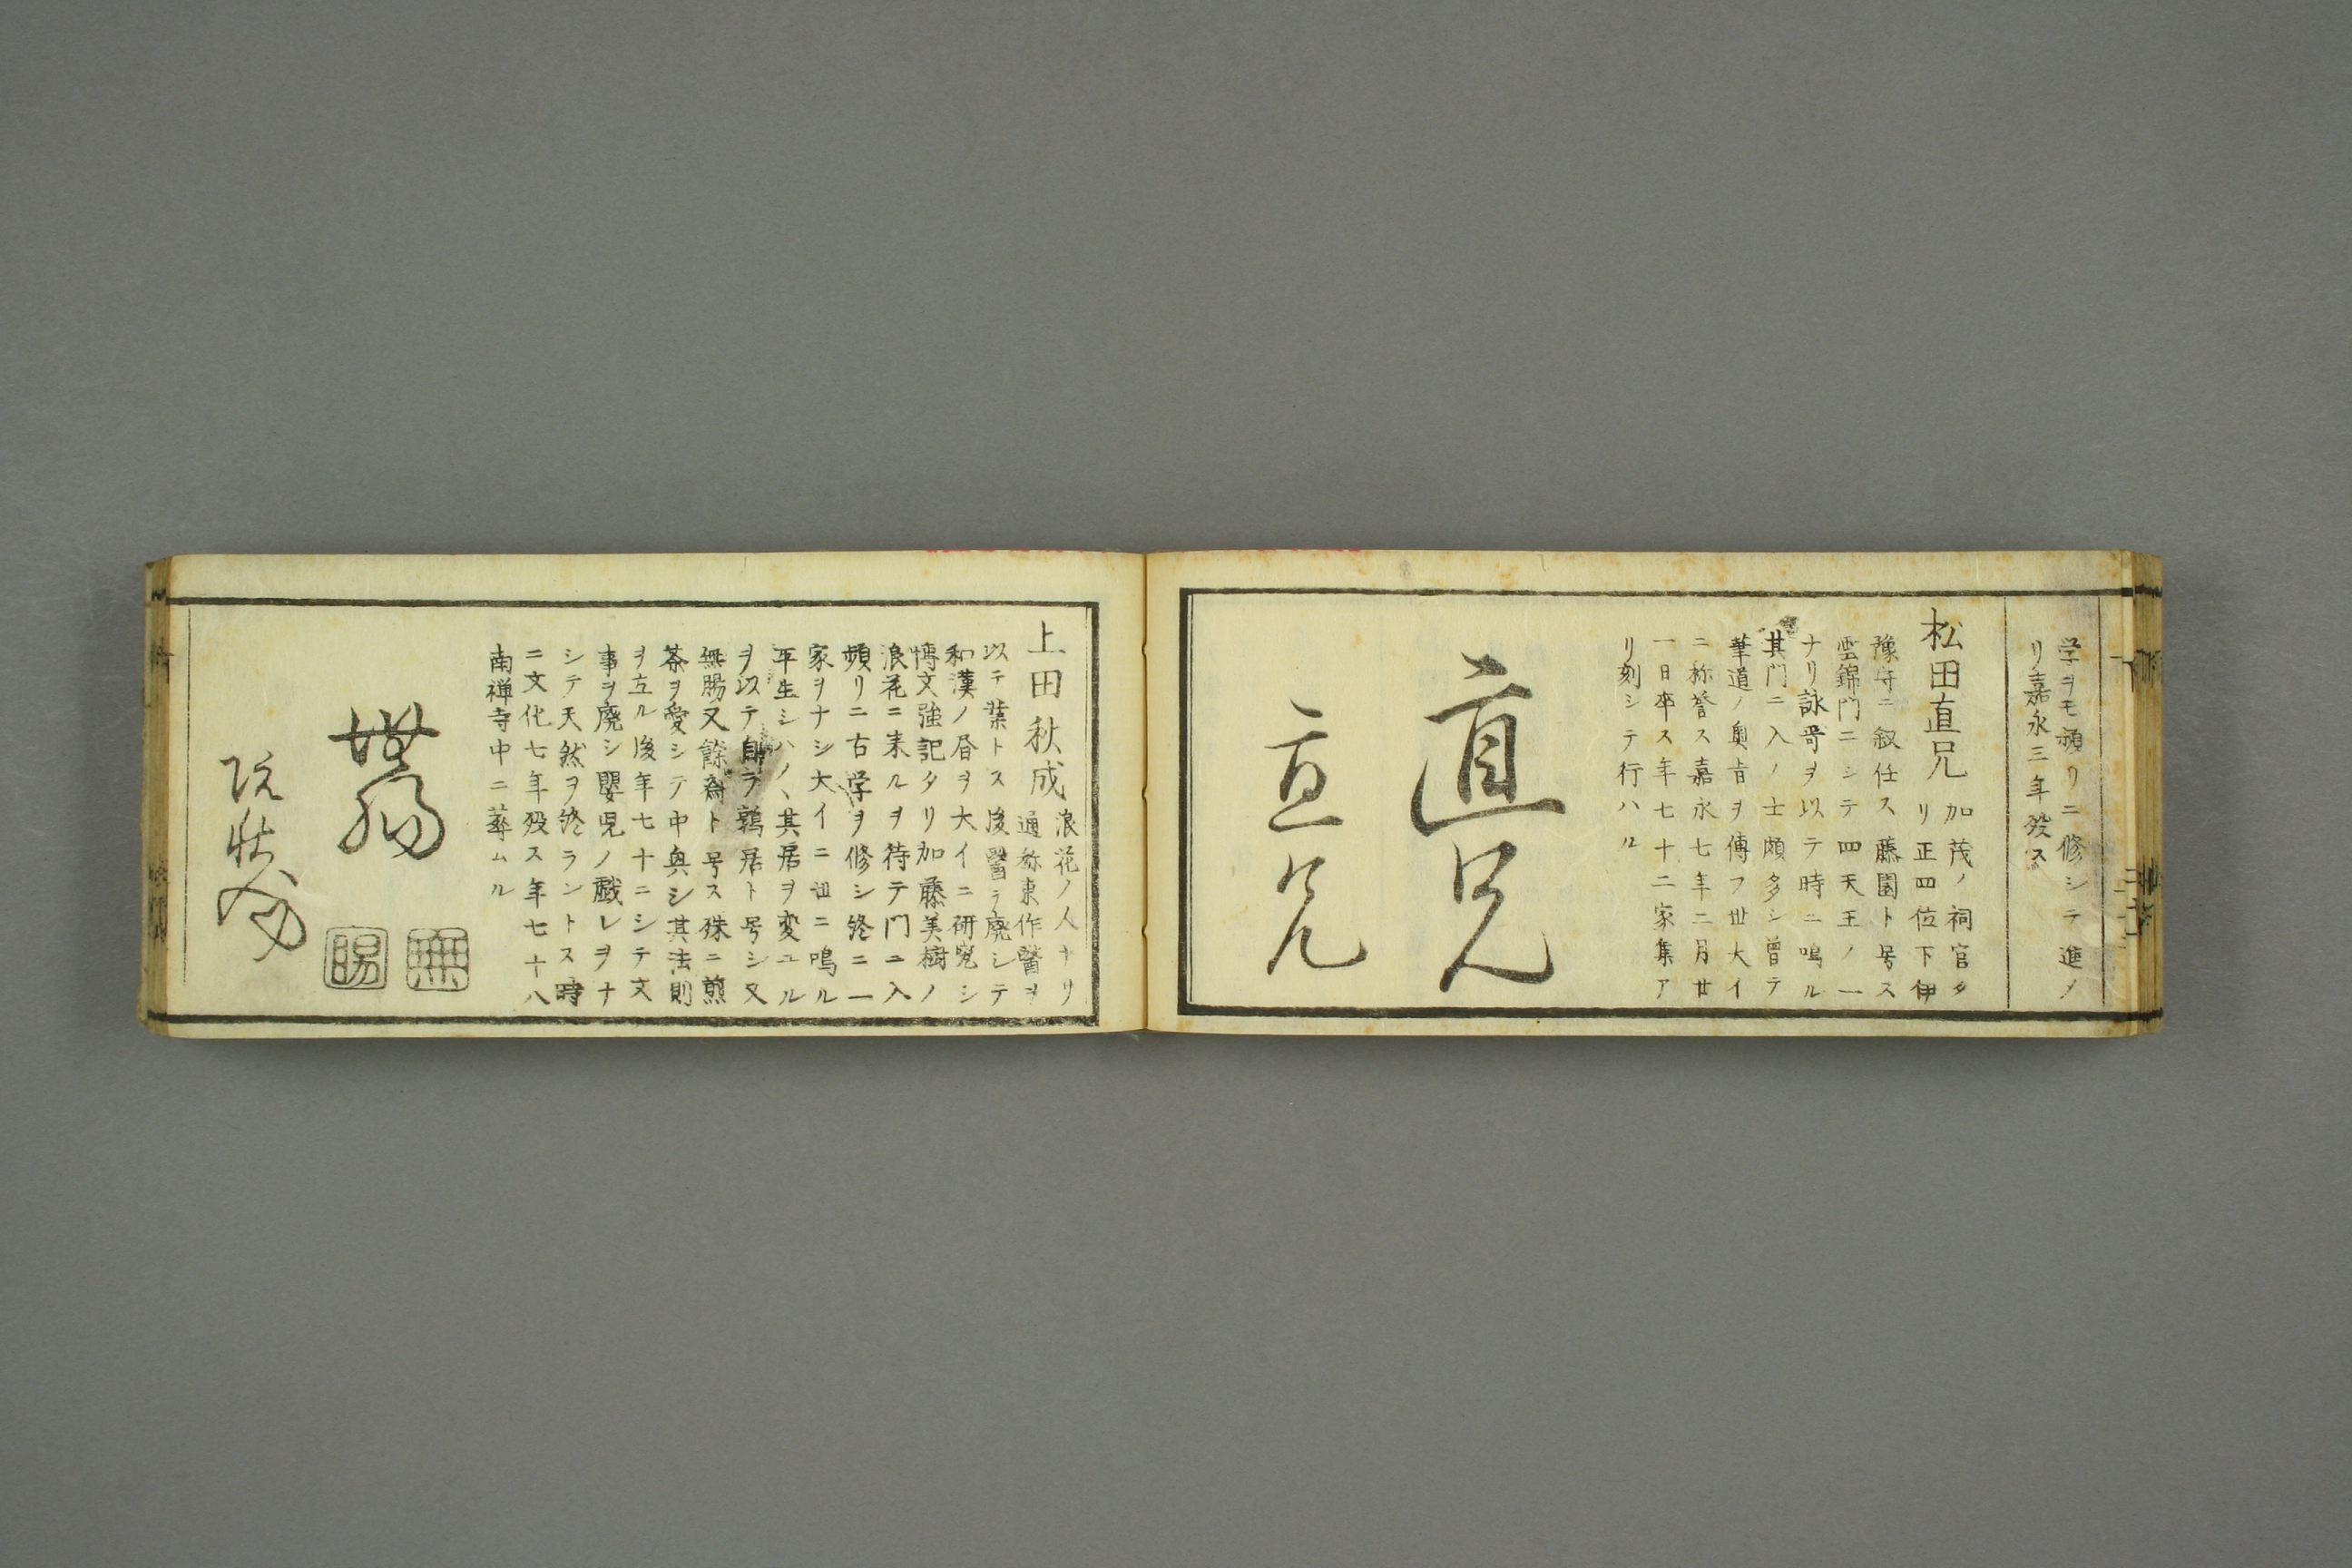 学ヲモ頻リニ修シテ進メ
リ嘉永三年歿ス
松田直兄
加茂ノ祠官タ
リ正四位下伊
豫守ニ叙任ス藤園ト号ス
雲錦門ニシテ四天王ノ一
ナリ詠哥ヲ以テ時ニ鳴ル
其門ニ入ノ士頗多シ曾テ
筆道ノ奥旨ヲ傳フ世大イ
ニ称誉ス嘉永七年二月廿
一日卒ス年七十二家集ア
リ刻シテ行ハル
直兄
直兄
上田秋成
浪花ノ人ナリ
通称東作醫ヲ
以テ業トス後醫ヲ廃シテ
和漢ノ昏ヲ大イニ研究シ
博文強記タリ加藤美樹ノ
浪花ニ来ルヲ待テ門ニ入
頻リニ古学ヲ修シ終ニ一
家ヲナシ大イニ世ニ鳴ル
平生シハ〳〵其居ヲ変ユル
ヲ以テ自ラ鶉居ト号シ又
無腸又餘斎ト号ス殊ニ煎
茶ヲ愛シテ中興シ其法則
ヲ立ル後年七十ニシテ文
事ヲ廃シ嬰児ノ戯レヲナ
シテ天然ヲ終ラントス時
ニ文化七年歿ス年七十八
南禅寺中ニ葬ムル
無腸
無
腸